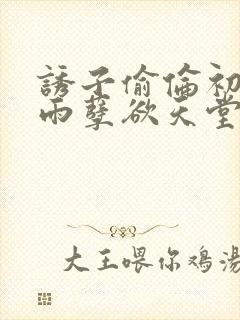 誘子偷倫初
雨孽欲天堂
大王喂你鸡湯